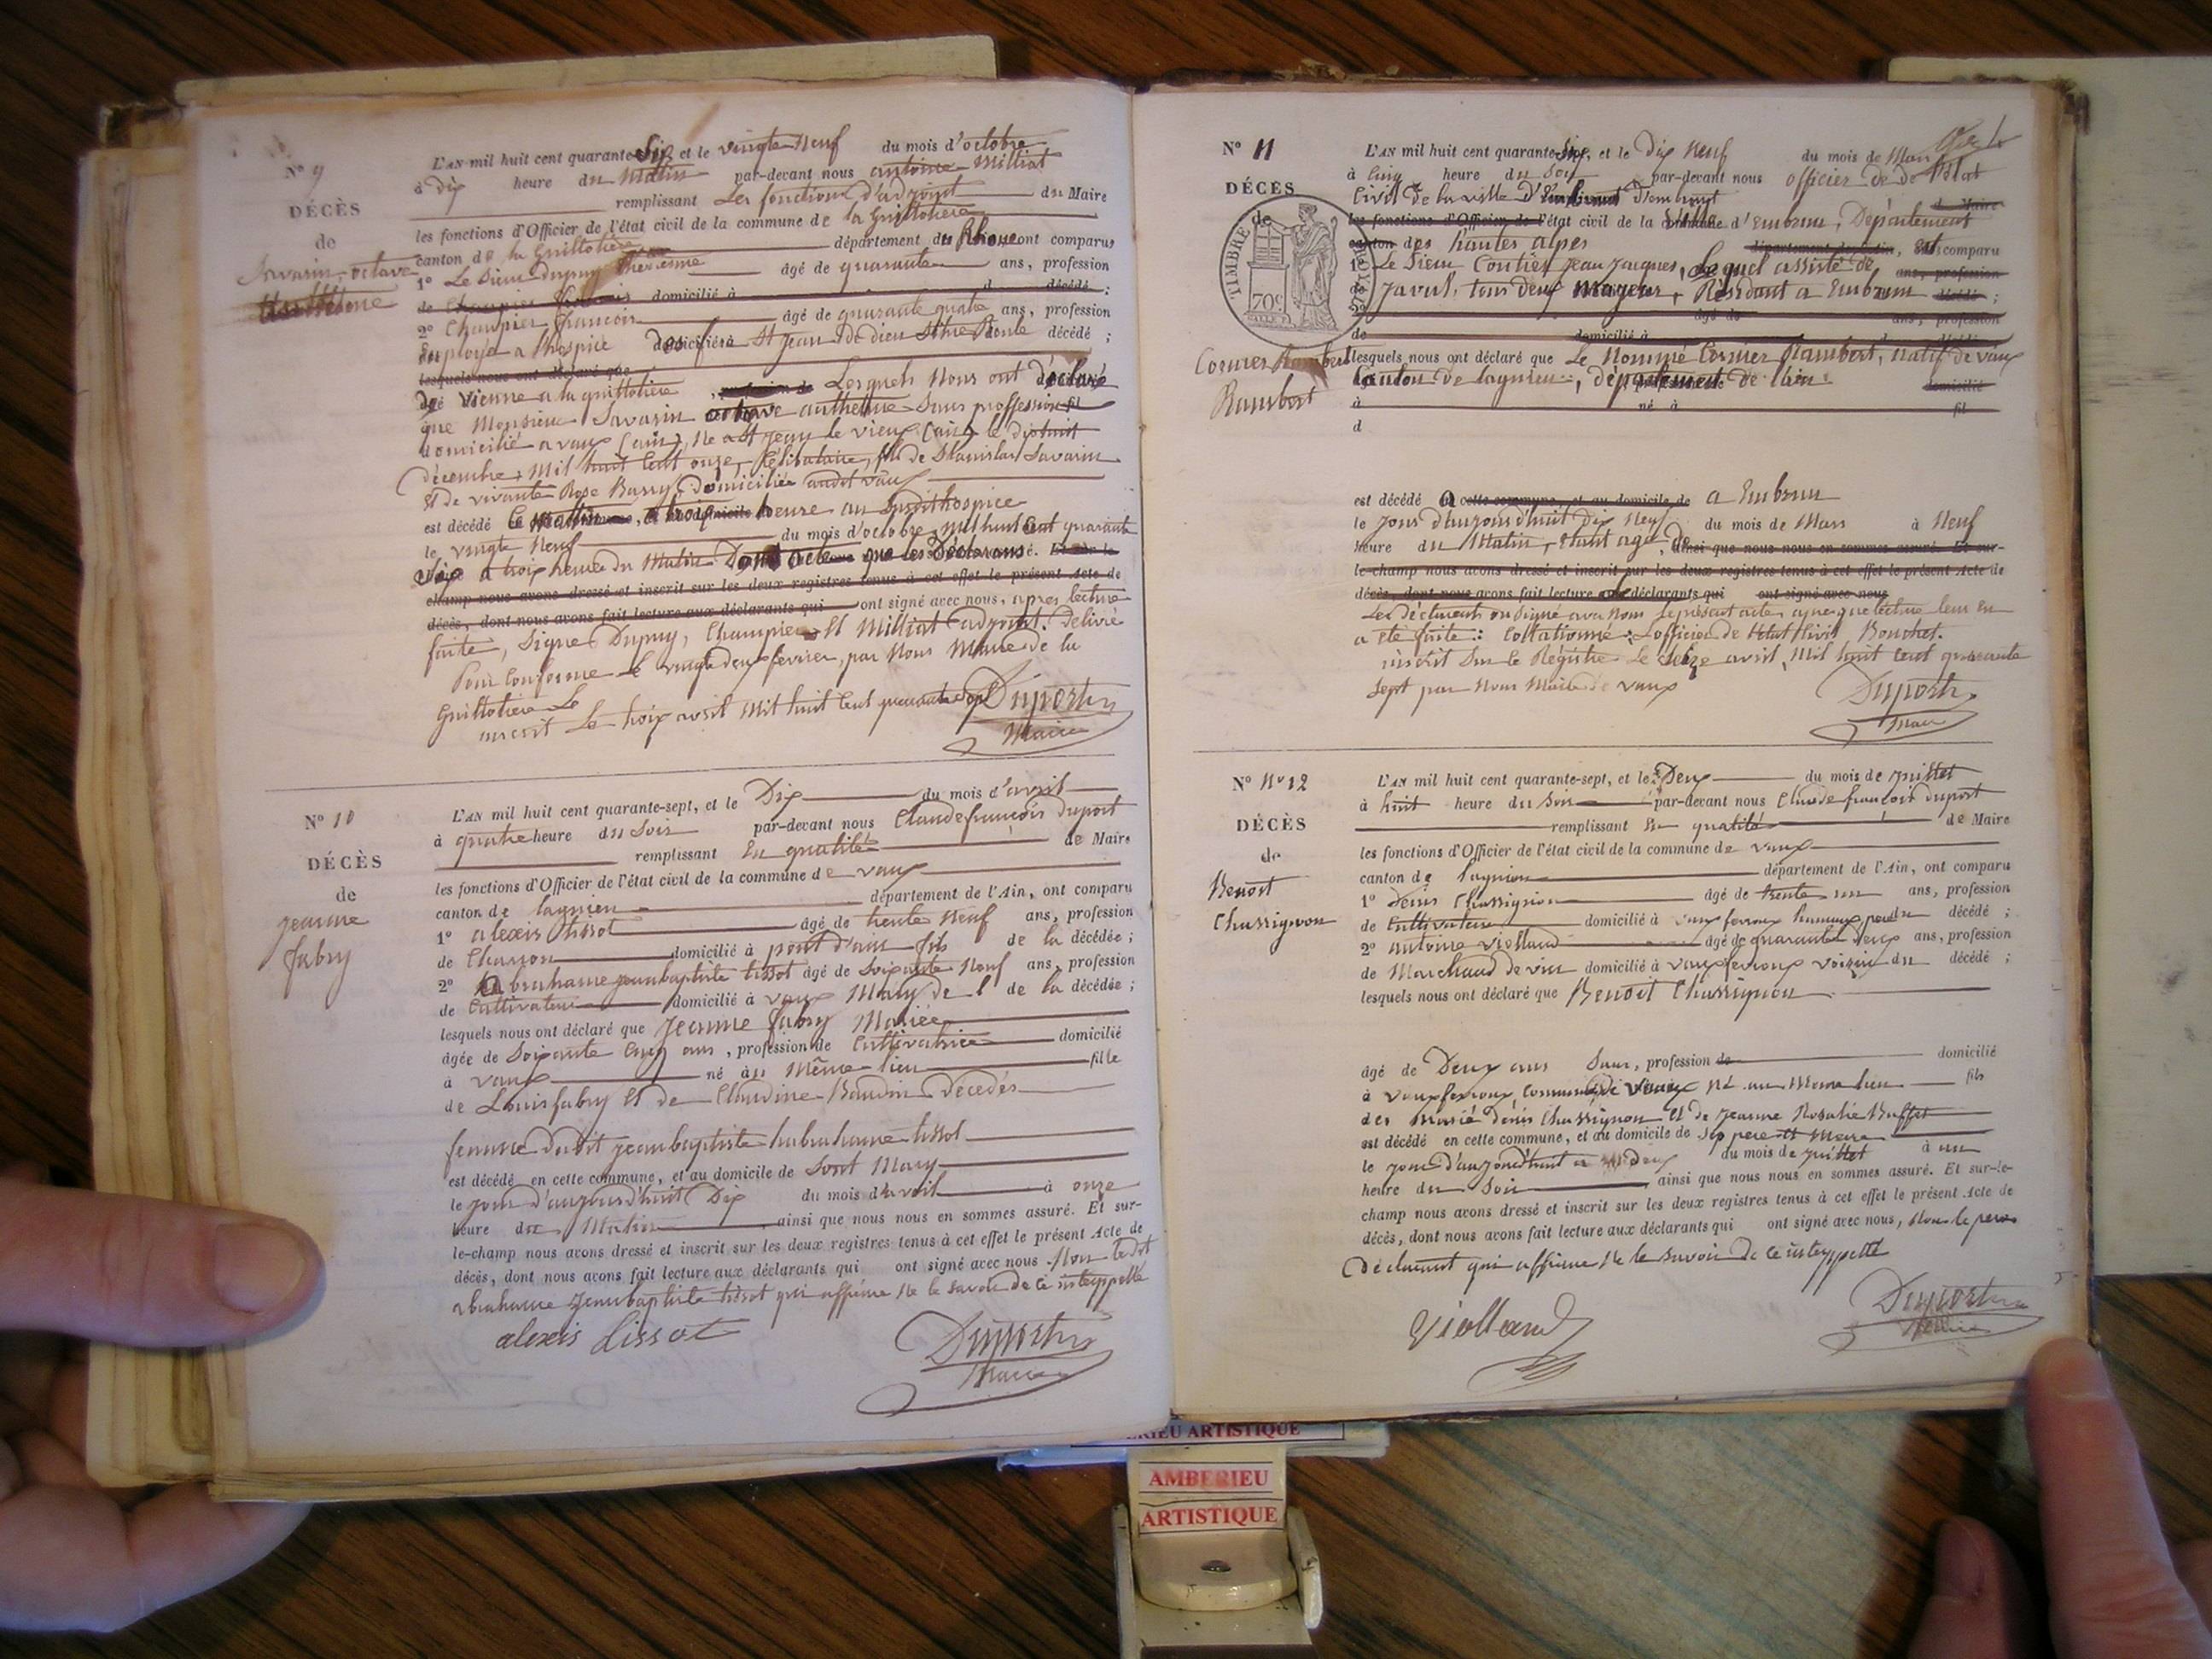 N° 9
DÉCÈS
de
Savarin octave
Anthelme
L'AN mil huit cent quarante-six et le vingt Neuf du mois d'octobre
à dix heure du Matin par-devant nous antoine Milliat
remplissant Les fonctions d'adjoint du Maire
les fonctions d'Officier de l'état civil de la commune de la Guillotière
canton de la Guillotière département du Rhône ont comparu
1° Le Sieur Dupuy âgé de quarante ans, profession
de domicilié à d décédé ;
2° Champier françois âgé de quarante quatre ans, profession
Employé a l'hospice domicilié à St jean de dieu décédé ;
lesquels nous ont déclaré que
Vienne a la guillotière Lesquels Nous ont déclaré
que Monsieur Savarin octave anthelme Sans proffession fil
domicilié a vaux (ain), Né a St jean le vieux (ain) le dix huit
décembre Mil huit Cent onze, Célibataire, fils de Stanislas Savarin
Et de vivante Rose Barry, domiciliée audit vaux
est décédé Ce Matin a trois heure au Susdit hospice
le vingt Neuf du mois d'octobre Mil huit Cent quarante
Six a trois heure du Matin Dont acte que les Déclarans
champ nous avons dressé et inscrit sur les deux registres tenus à cet effet le présent Acte de
décès, dont nous avons fait lecture aux déclarants qui ont signé avec nous, apres lecture
faite, Signé Dupuy, Champier Et Milliat adjoint. Delivré
Pour Conforme le vingt deux fevrier, par Nous Maire de la
Guillotière
inscrit Le trois avril Mil huit Cent quarante Sept Duport
Maire
N° 10
DÉCÈS
de
jeanne
fabry
L'AN mil huit cent quarante-sept, et le Dix du mois d'avril
à quatre heure du Soir par-devant nous Claude françois duport
remplissant En qualité de Maire
les fonctions d'Officier de l'état civil de la commune de vaux
canton de lagnieu département de l'Ain, ont comparu
1° alexis tissot âgé de trente Neuf ans, profession
de Charron domicilié à pont d'ain fils de la décédée ;
2° abrahame jean baptiste tissot âgé de Soixante Neuf ans, profession
de Cultivateur domicilié à vaux Mary de l de la décédée ;
lesquels nous ont déclaré que Jeanne fabry Mariée
âgée de Soixante Cinq ans, profession de Cultivatrice domicilié
à vaux né au Même lieu fille
de Louis fabry Et de Claudine Baudin Décedés
femme dudit jean baptiste habrahame tissot
est décédé en cette commune, et au domicile de Sont Mary
le jour d'aujourd'huit Dix du mois d'avril à onze
heure du Matin, ainsi que nous nous en sommes assuré. Et sur-
le-champ nous avons dressé et inscrit sur les deux registres tenus à cet effet le présent Acte de
décès, dont nous avons fait lecture aux déclarants qui ont signé avec nous Non ledit
abrahame Jean baptiste tissot qui affirme Ne le Savoir de Ce interppellé
alexis tissot
Duport
Maire
N° 11
DÉCÈS
de
TIMBRE
70c
Rambert
L'AN mil huit cent quarante-sept, et le Dix Neuf du mois de Mars
à Cinq heure du Soir par-devant nous officier de l'état
Civil de la ville d'Embrun
les fonctions d'Officier de l'état civil de la Ville d'Embrun, Département
canton des hautes alpes département de l'Ain, Est comparu
1° Le Sieur Coutier Jean Jacques, lequel assisté de ans, profession
de Javel, tous deux Majeurs, Résidant a Embrun décédé ;
2° âgé de ans, profession
de domicilié à
lesquels nous ont déclaré que Le Nommé Rambert, natif de vaux
Canton de lagnieu, département de l'ain domicilié
à né à fil
d
est décédé en cette commune, et au domicile de a Embrun
le jour d'aujourd'huit Dix Neuf du mois de Mars à Neuf
heure du Matin, Etant agé, ainsi que nous nous en sommes assuré. Et sur-
le-champ nous avons dressé et inscrit sur les deux registres tenus à cet effet le présent Acte de
décès, dont nous avons fait lecture aux déclarants qui ont signé avec nous
Les déclarants on Signé avec Nous le présent acte, apres que lecture leur En
a Eté faite : Collationné : L'officier de l'Etat Civil, Bouchet.
inscrit Sur le Régistre Le Seize avril, Mil huit Cent quarante
Sept par Nous Maire de vaux
Duport
Maire
N° 12
DÉCÈS
de
Benoit
Chassignon
L'AN mil huit cent quarante-sept, et le Deux du mois de juillet
à huit heure du Soir par-devant nous Claude françois duport
remplissant En qualité de Maire
les fonctions d'Officier de l'état civil de la commune de vaux
canton de lagnieu département de l'Ain, ont comparu
1° Denis Chassignon âgé de trente un ans, profession
de Cultivateur domicilié à vaux fevroux pere du décédé ;
2° antoine viollaud âgé de quarante deux ans, profession
de Marchand de vin domicilié à vaux fevroux voizin du décédé ;
lesquels nous ont déclaré que Benoit Chassignon
âgé de Deux ans Sans, profession de domicilié
à vaux fevroux Commune de vaux né au Meme lieu fils
des Marié Denis Chassignon Et de Jeanne Rosalie Buffet
est décédé en cette commune, et au domicile de Ses pere Et Mere
le jour d'aujourd'huit deux du mois de juillet à un
heure du Soir, ainsi que nous nous en sommes assuré. Et sur-le-
champ nous avons dressé et inscrit sur les deux registres tenus à cet effet le présent Acte de
décès, dont nous avons fait lecture aux déclarants qui ont signé avec nous, Non le pere
Déclarant qui affirme Ne le Savoir de Ce interppellé
Viollaud
Duport
Maire
AMBERIEU ARTISTIQUE
AMBERIEU
ARTISTIQUE